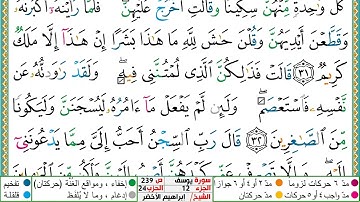 كُلَّ وَٰحِدَةٍ مِّنْهُنَّ سِكِّينًا وَقَالَتِ ٱخْرُجْ عَلَيْهِنَّ ۖ فَلَمَّا رَأَيْنَهُۥٓ أَكْبَرْنَهُۥ
وَقَطَّعْنَ أَيْدِيَهُنَّ وَقُلْنَ حَٰشَ لِلَّهِ مَا هَٰذَا بَشَرًا إِنْ هَٰذَآ إِلَّا مَلَكٌ
كَرِيمٌ ٣١ قَالَتْ فَذَٰلِكُنَّ ٱلَّذِى لُمْتُنَّنِى فِيهِ ۖ وَلَقَدْ رَٰوَدتُّهُۥ عَن
نَّفْسِهِۦ فَٱسْتَعْصَمَ ۖ وَلَئِن لَّمْ يَفْعَلْ مَآ ءَامُرُهُۥ لَيُسْجَنَنَّ وَلَيَكُونًا
مِّنَ ٱلصَّٰغِرِينَ ٣٢ قَالَ رَبِّ ٱلسِّجْنُ أَحَبُّ إِلَىَّ مِمَّا يَدْعُونَنِىٓ
مدّ ٦ حركات لزوما
مدّ ٢ أو ٤ أو ٦ جوازا
مدّ واجب ٤ أو ٥ حركات
مدّ حركتان
سورة يوسف
ص 239
الجزء 12
الحزب 24
الشيخ/ إبراهيم الأخضر
إخفاء، ومواقع الغنّة (حركتان)
إدغام، وما لا يُلفظ
تفخيم
قلقلة